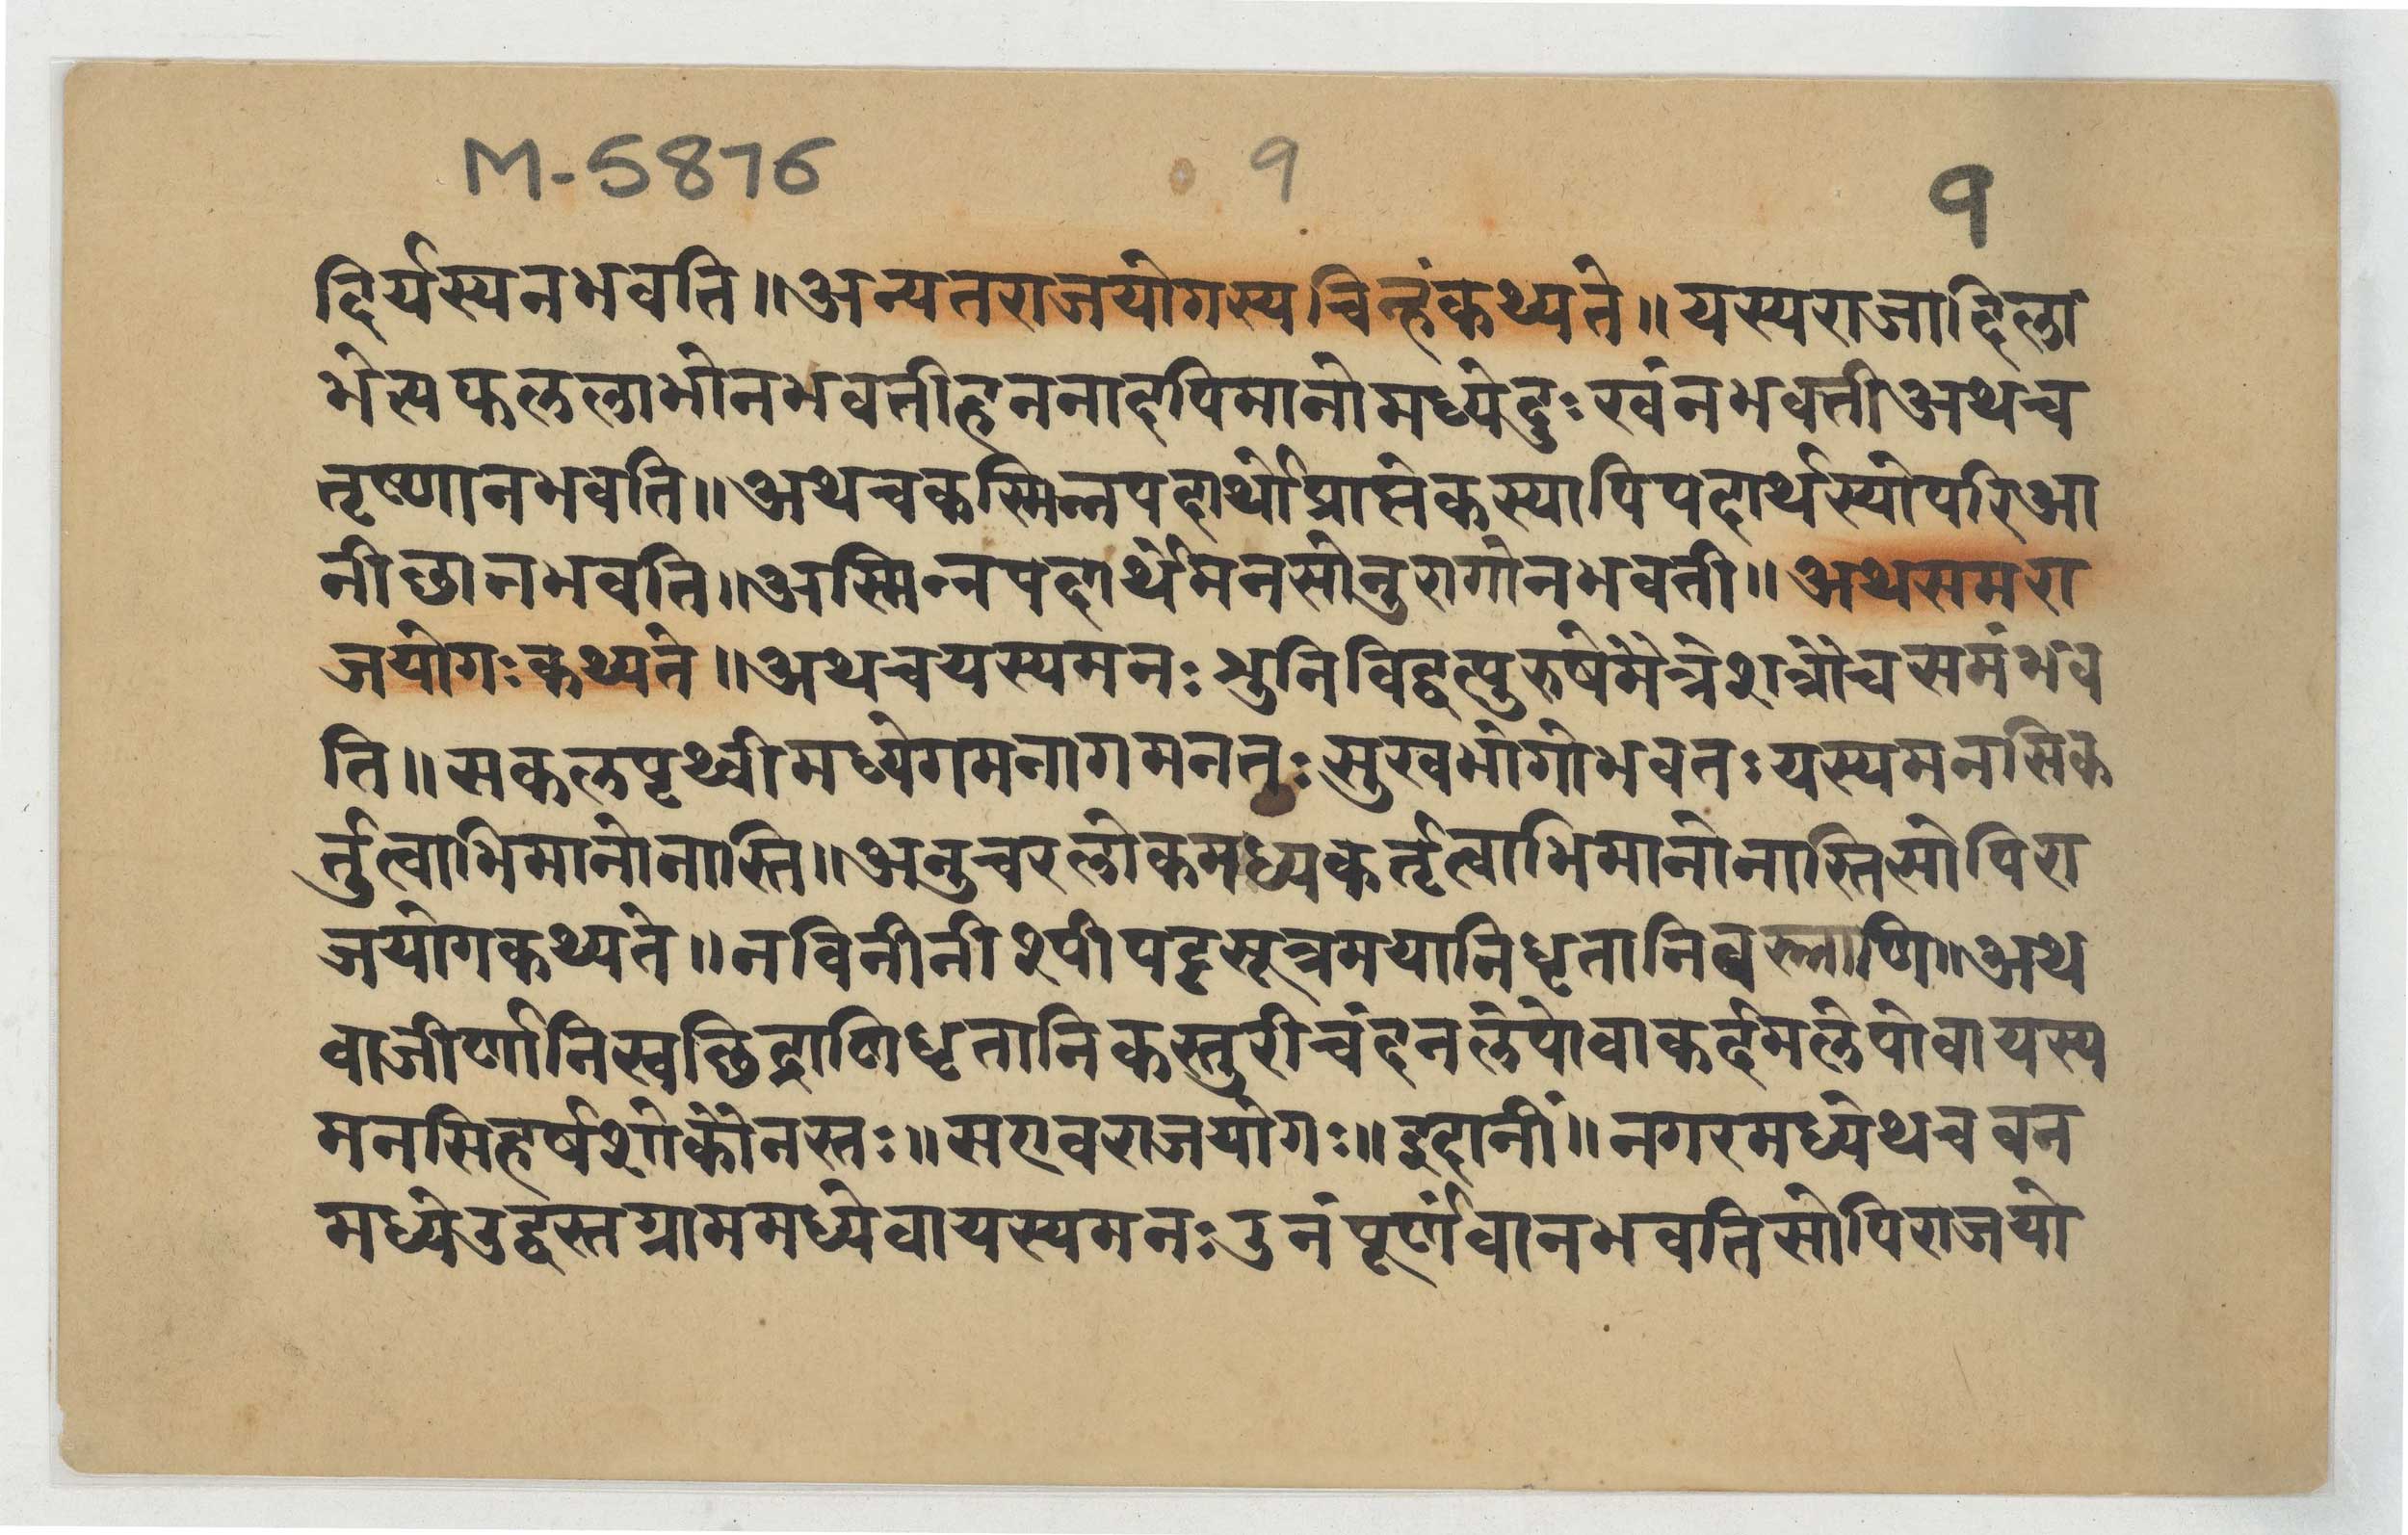 M-5876 9 9
द्दिर्यस्यनभवति॥अन्यतराजयोगस्यचिन्हंकथ्यते॥यस्यराजाद्दिला
भेस्यफललाभोनभवतीहननादपिमानोमध्येदुःखंनभवतीअथच
तृष्णानभवति॥अथचकस्मिन्नपदार्थोप्राप्तेकस्यापिपदार्थस्योपरिआ
नीछानभवति॥अस्मिन्नपदार्थेमनसोनुरागोनभवती॥अथसमरा
जयोगःकथ्यते॥अथचयस्यमनःश्रुनिविद्वत्पुरुषेमैत्रेशत्रौचसमंभव
ति॥सकलपृथ्वीमध्येगमनागमनतुःसुखभोगोभवतःयस्यमनसिक
र्तुत्वाभिमानोनास्ति॥अनुचरलोकमध्यकर्तृत्वाभिमानोनास्तिसोपिरा
जयोगकथ्यते॥नविनीनीश्पीपट्टसूत्रमयानिधृतानिवस्त्राणि॥अथ
वाजीर्णानिस्वछिद्राणिधृतानिकस्तुरीचंदनलेपोवाकर्दमलेपोवायस्य
मनसिहर्षशोकौनस्तः॥सएवराजयोगः॥इदानीं॥नगरमध्येथचवन
मध्येउद्वस्तग्राममध्येवायस्यमनःउनंपूर्णंवानभवतिसोपिराजयो